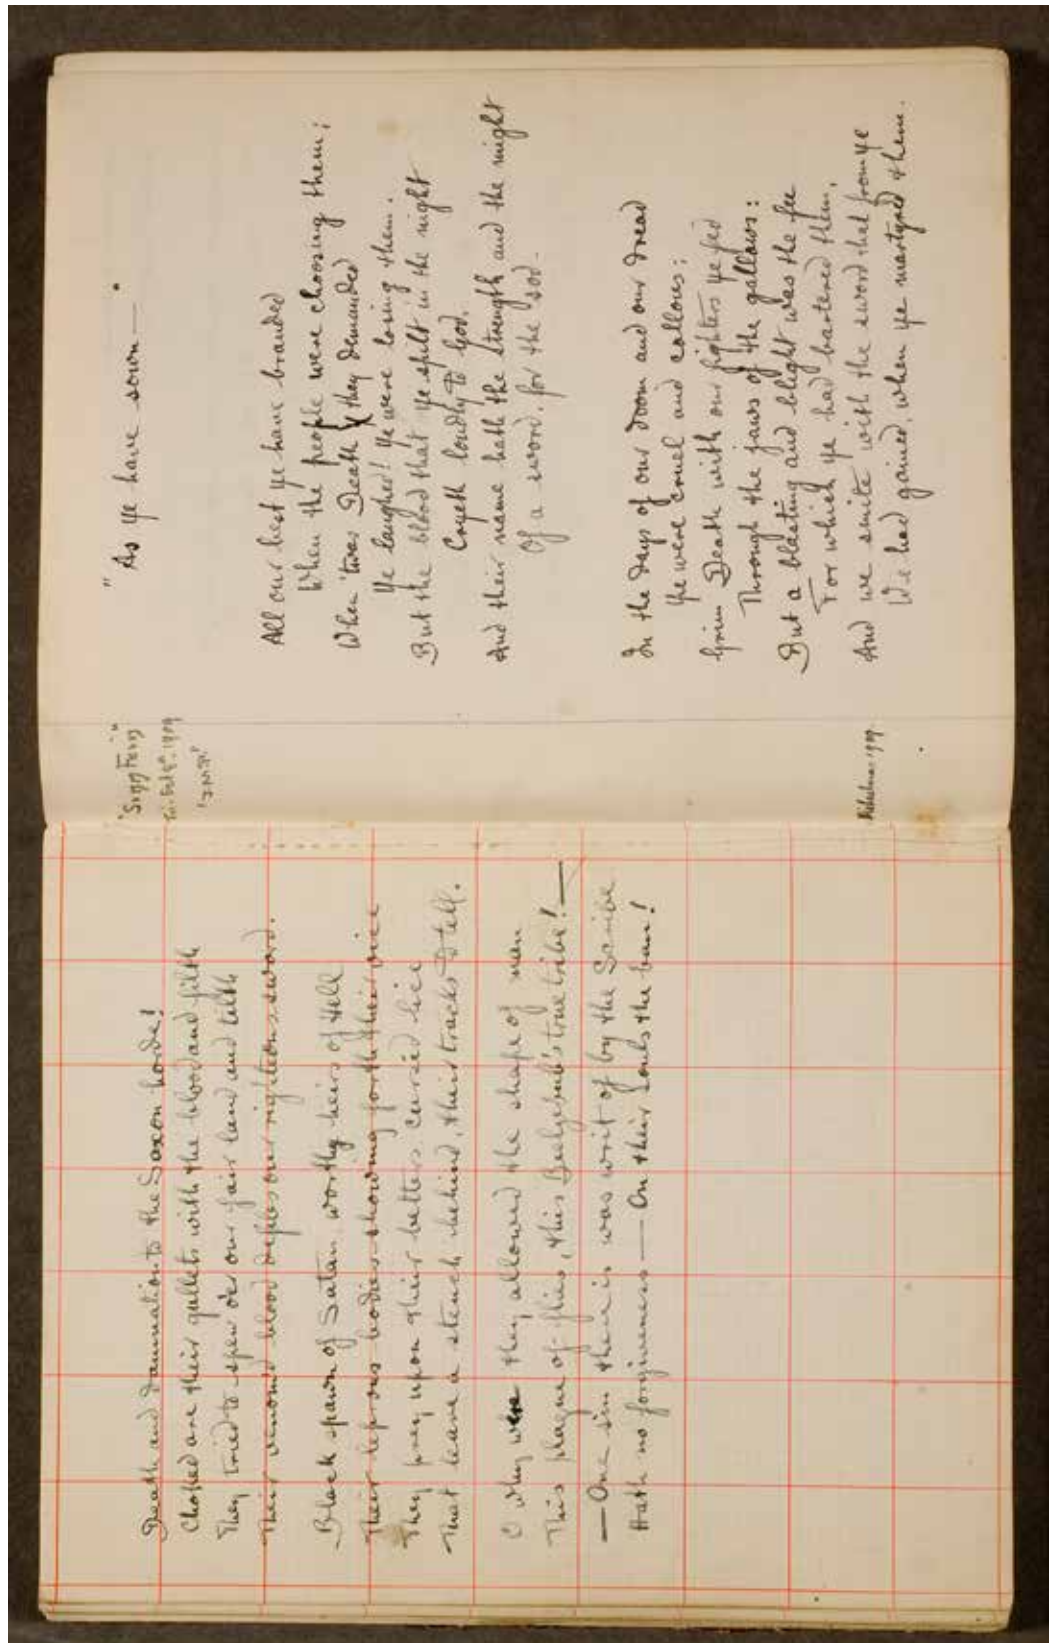 Death and damnation to the Saxon horde!
Choked are their gullets with the blood and filth
They tried to spew o'er our fair land and tilth
Their venom'd blood defiles our righteous sword.
Black spawn of Satan, worthy heirs of Hell
Their leprous bodies showing forth their vice
They prey upon their betters, cursèd lice
That leave a stench behind, their tracks to tell.
O why were they allowed the shape of man
This plague of flies, this Beelzebub's true tribe! —
— One sin there is was writ of by the Scribe
Hath no forgiveness — On their souls the ban!
"As ye have sown —
1909
All our best ye have branded
When the people were choosing them;
When 'twas Death they demanded
Ye laughed! Ye were losing them.
But the blood that ye spilt in the night
Crieth loudly to God,
And their name hath the strength and the might
Of a sword, for the sod.
In the days of our doom and our dread
Ye were cruel and callous;
Grim Death with our fighters ye fed
Through the jaws of the gallows:
But a blasting and blight was the fee
For which ye had bartered them,
And we smite with the sword that from ye
We had gained, when ye martyred them.